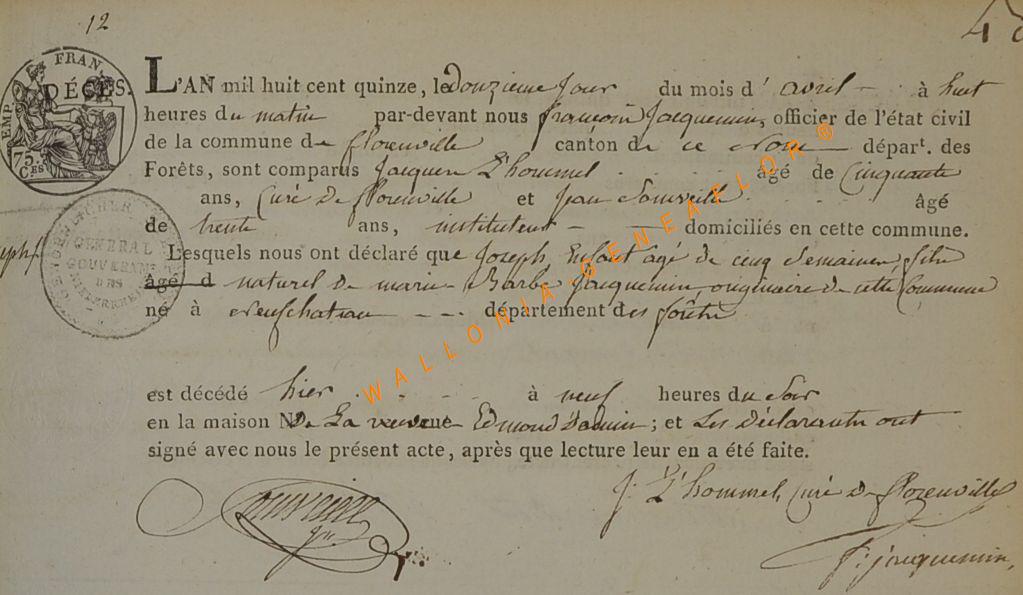 12
FRAN
EMP.
75.
C.ES
DÉCÈS.
L'AN mil huit cent quinze, le Douzieme Jour du mois d'avril - à huit
heures du matin par-devant nous françois Jacquemin, officier de l'état civil
de la commune de florenville canton de ce nom - départ. des
Forêts, sont comparus Jacques L'hommel âgé de Cinquante
ans, Curé De florenville et Jean Souveille âgé
de trente ans, instituteur - domiciliés en cette commune.
Lesquels nous ont déclaré que Joseph Enfant agé de cinq Semaines, fils
âgé d naturel De marie Barbe Jacquemin originaire de cette Commune
né à neufchateau - - - département des forêts
est décédé hier à neuf heures du Soir
en la maison N De La veuve Edmond ; et Les Déclarants ont
signé avec nous le présent acte, après que lecture leur en a été faite.
J: L'hommel, Curé De florenville
f: jacquemin,
GENERAL
GOUVERNEMT
WALLONIA.GENEAFLOR®